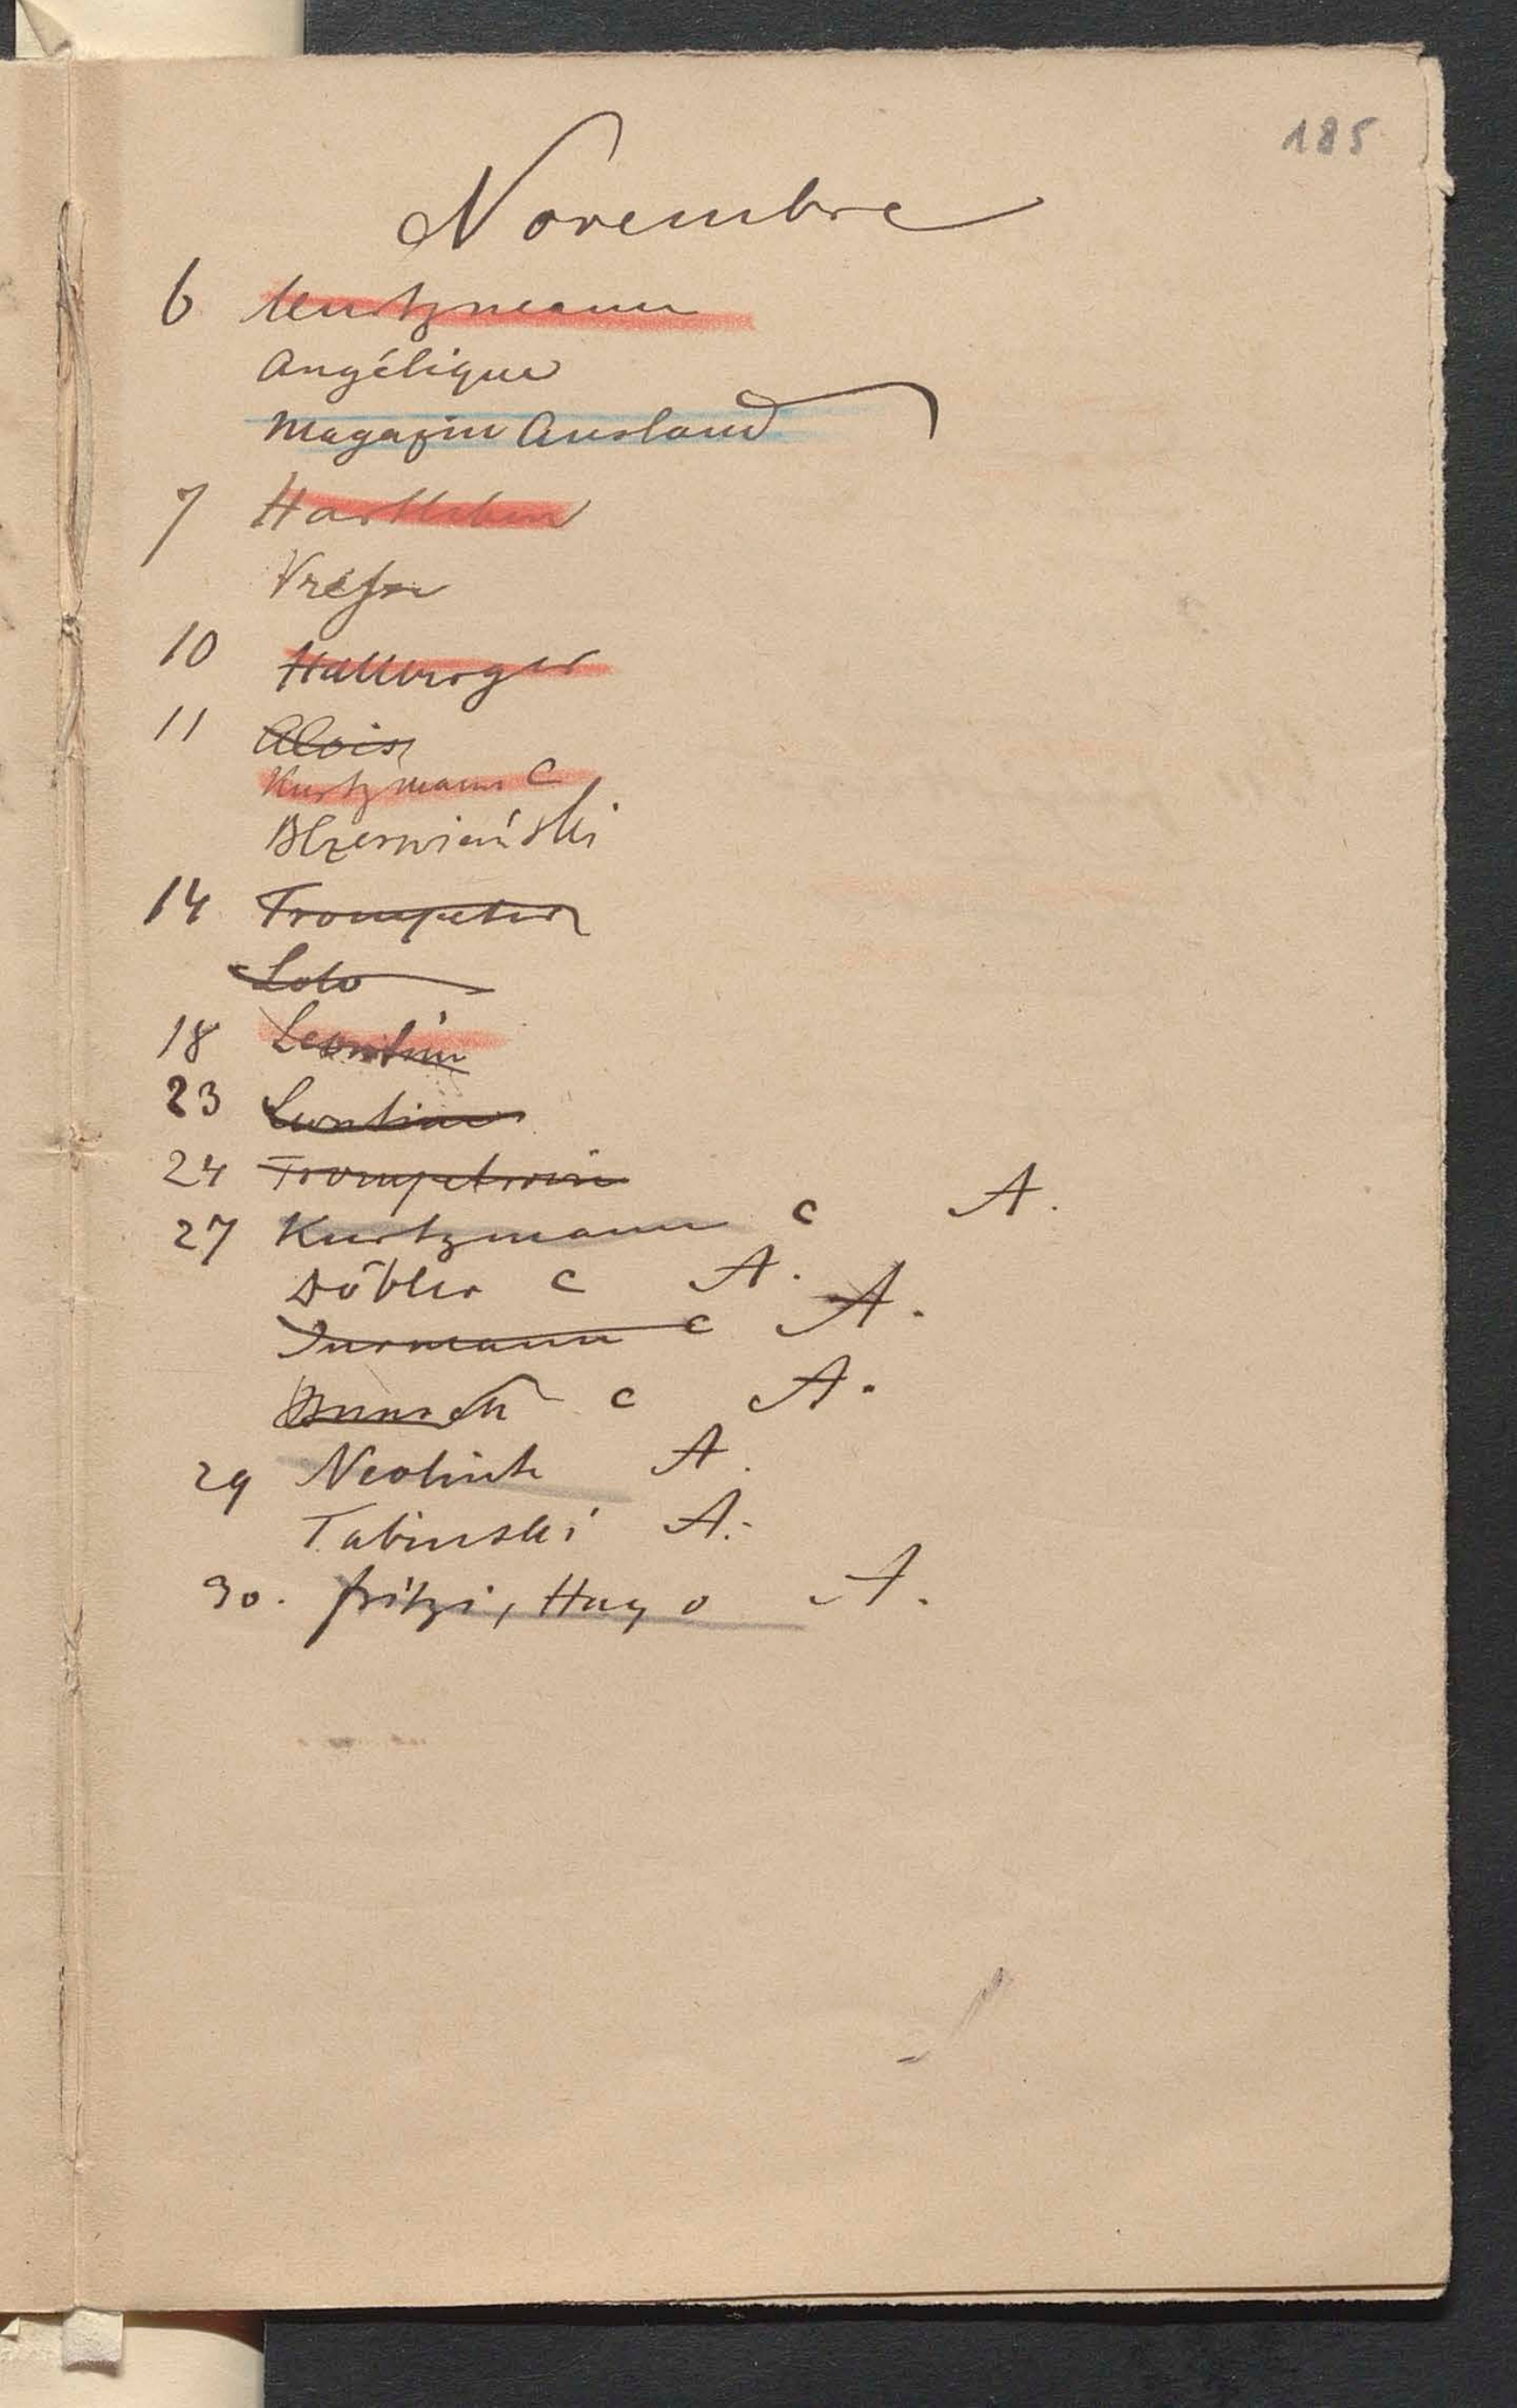 185
Novembre
6 Kurtzmann
Angélique
Magazin Ausland
7 Hartleben
10 Hallberger
11 Alois
Kurtzmann C
14 Trompeter
Loto
18 Leontin
23 Leontine
24 Trompeterin
27 Kurtzmann c A.
Döbler c A.
c A.
c A.
29 A.
Tabinski A.
30. Fritzi, Hugo A.